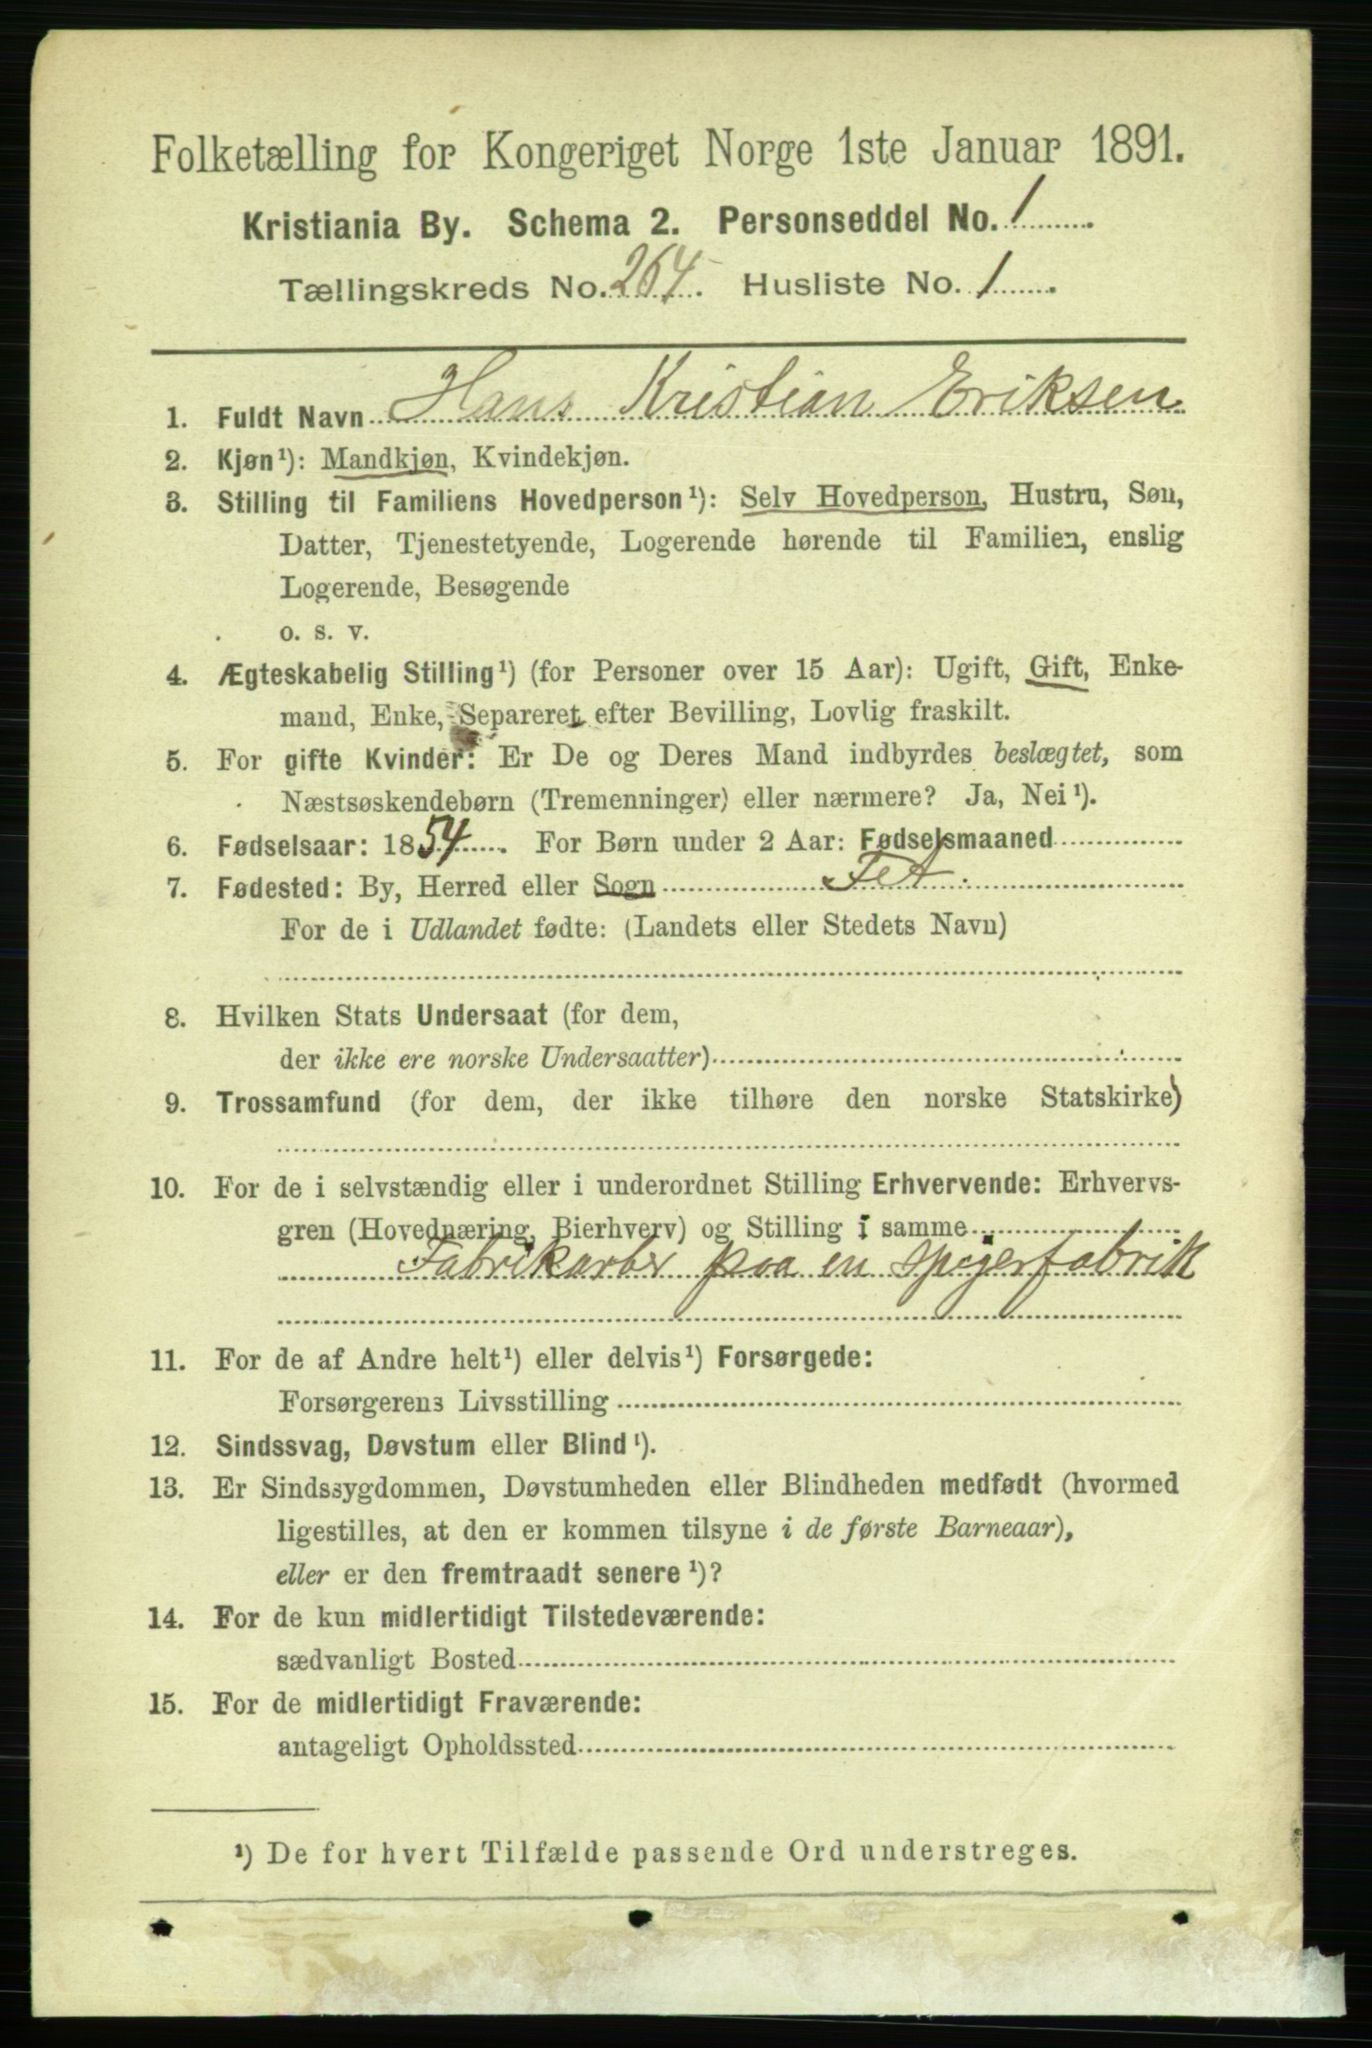 Folketælling for Kongeriget Norge 1ste Januar 1891.
Kristiania By. Schema 2. Personseddel No. 1
Tællingskreds No. 264. Husliste No. 1
1. Fuldt Navn Hans Kristian Eriksen
2. Kjøn¹): Mandkjøn, Kvindekjøn.
3. Stilling til Familiens Hovedperson¹): Selv Hovedperson, Hustru, Søn,
Datter, Tjenestetyende, Logerende hørende til Familien, enslig
Logerende, Besøgende
o. s. v.
4. Ægteskabelig Stilling¹) (for Personer over 15 Aar): Ugift, Gift, Enke-
mand, Enke, Separeret efter Bevilling, Lovlig fraskilt.
5. For gifte Kvinder: Er De og Deres Mand indbyrdes beslægtet, som
Næstsøskendebørn (Tremenninger) eller nærmere? Ja, Nei¹).
6. Fødselsaar: 1854. For Børn under 2 Aar: Fødselsmaaned
7. Fødested: By, Herred eller Sogn Fet.
For de i Udlandet fødte: (Landets eller Stedets Navn)
8. Hvilken Stats Undersaat (for dem,
der ikke ere norske Undersaatter)
9. Trossamfund (for dem, der ikke tilhøre den norske Statskirke)
10. For de i selvstændig eller i underordnet Stilling Erhvervende: Erhvervs-
gren (Hovednæring, Bierhverv) og Stilling i samme
Fabrikarber paa en spigerfabrik
11. For de af Andre helt¹) eller delvis¹) Forsørgede:
Forsørgerens Livsstilling
12. Sindssvag, Døvstum eller Blind¹).
13. Er Sindssygdommen, Døvstumheden eller Blindheden medfødt (hvormed
ligestilles, at den er kommen tilsyne i de første Barneaar),
eller er den fremtraadt senere¹)?
14. For de kun midlertidigt Tilstedeværende:
sædvanligt Bosted
15. For de midlertidigt Fraværende:
antageligt Opholdssted
¹) De for hvert Tilfælde passende Ord understreges.